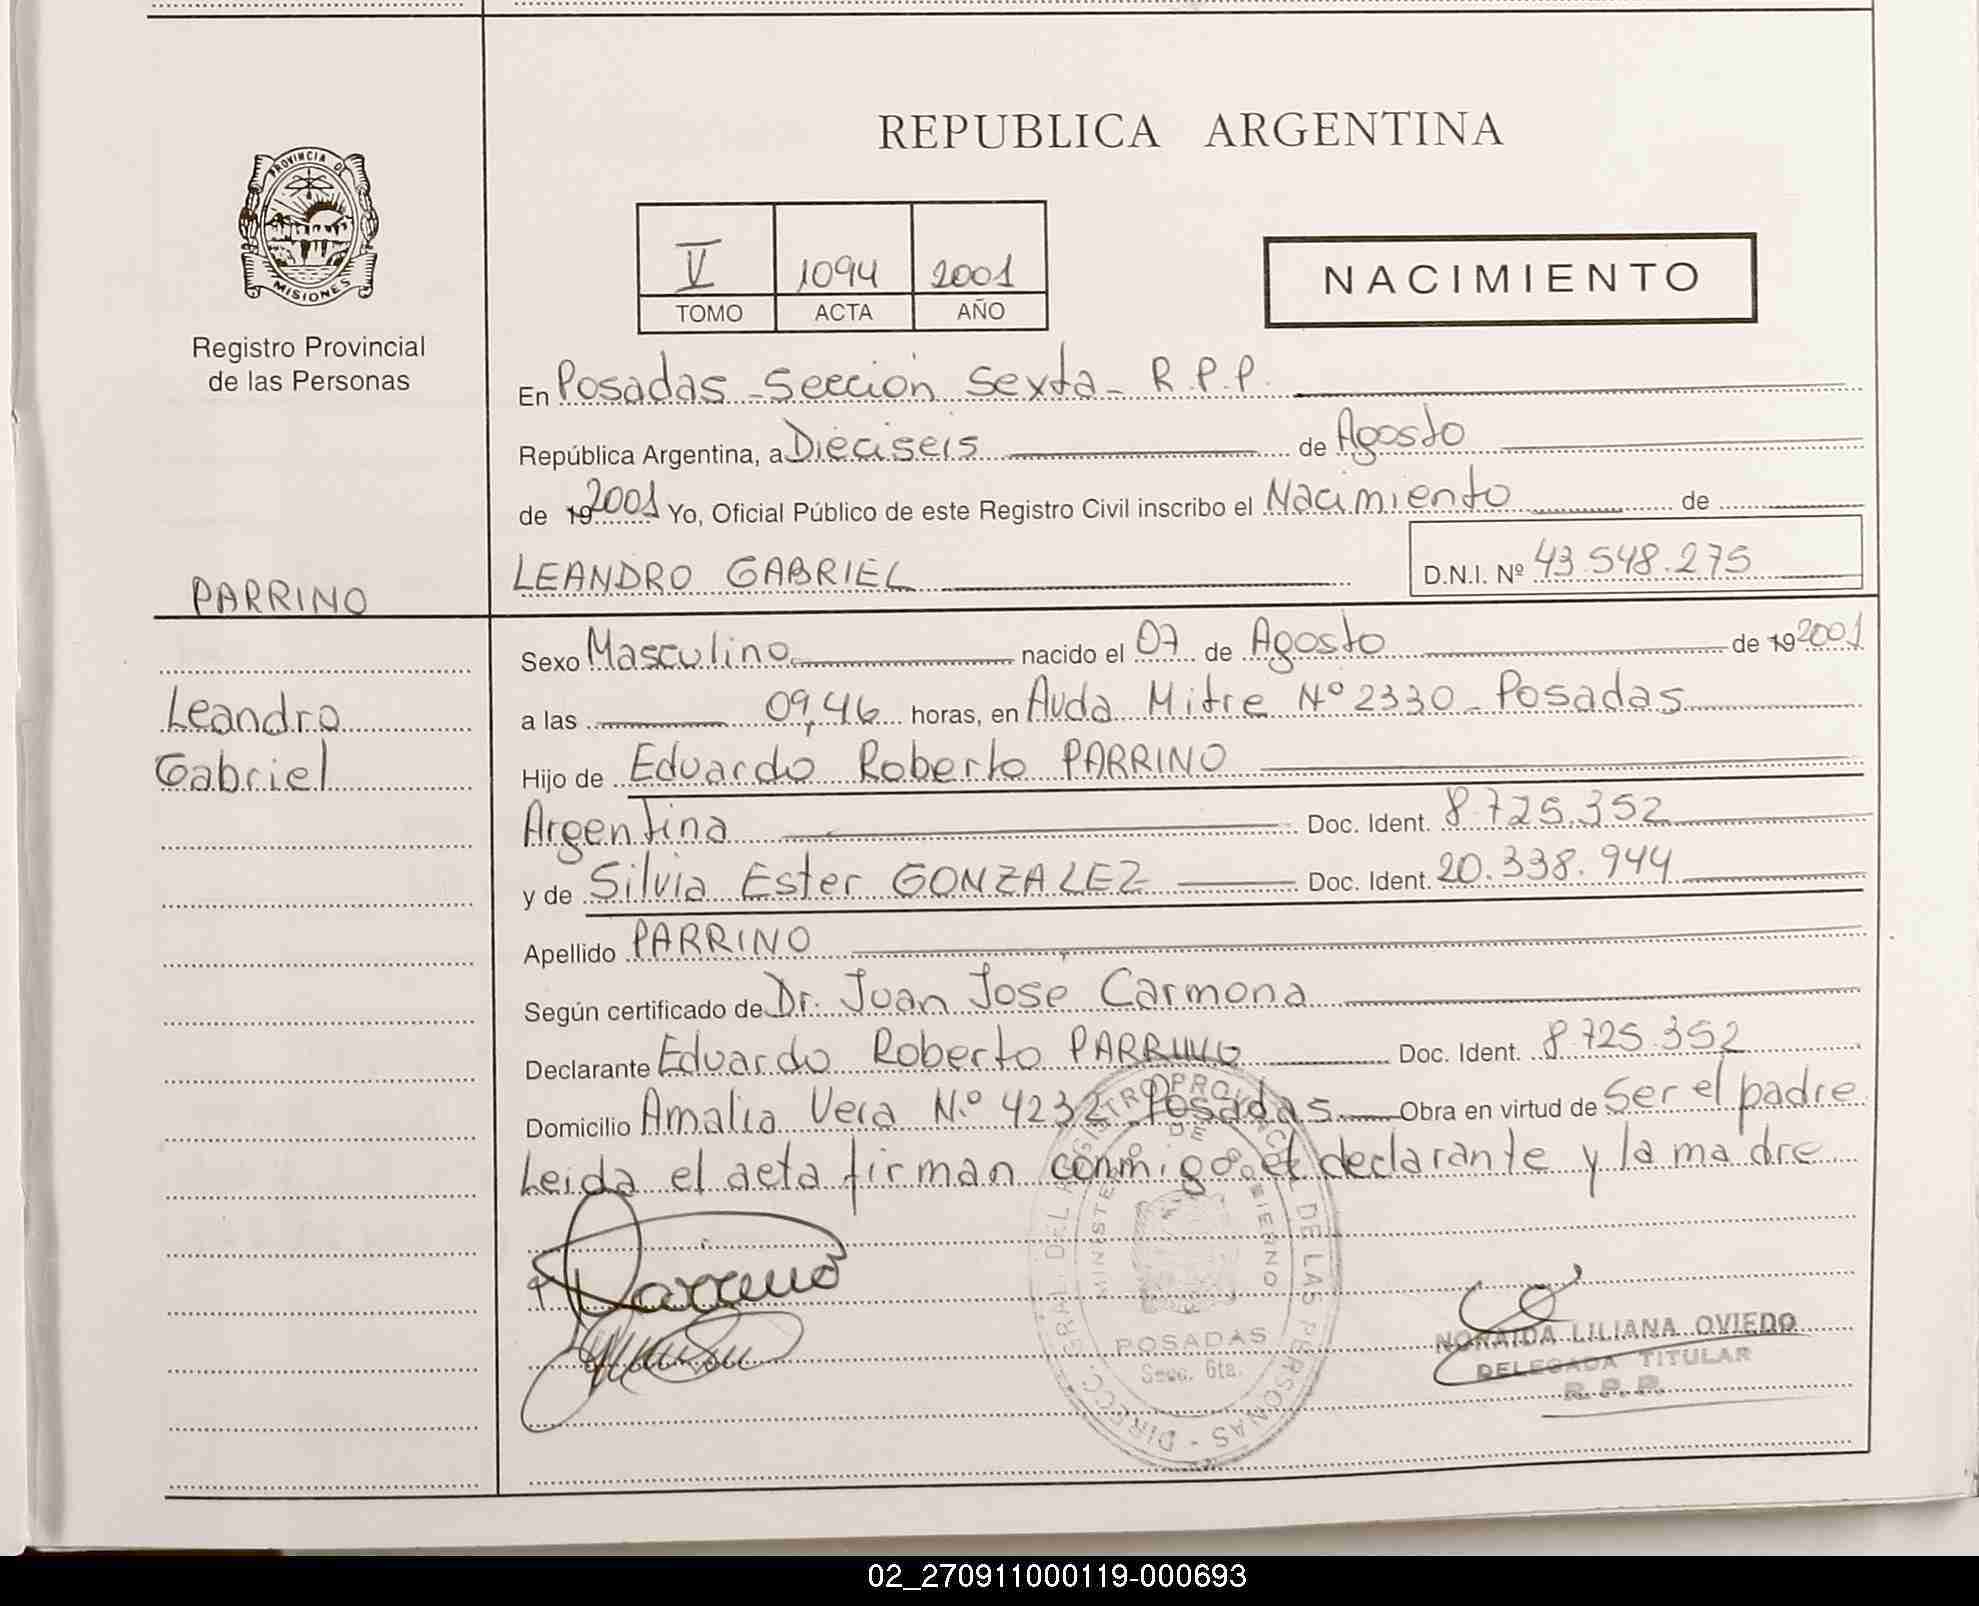 REPUBLICA ARGENTINA
PROVINCIA DE
MISIONES
Registro Provincial
de las Personas
V 1094 2001
TOMO ACTA AÑO
NACIMIENTO
En Posadas - Sección Sexta - R.P.P.
República Argentina, a Dieciseis de Agosto
de 19 2001 Yo, Oficial Público de este Registro Civil inscribo el Nacimiento de
LEANDRO GABRIEL D.N.I. Nº 43.548.275
PARRINO
Leandro
Gabriel
Sexo Masculino nacido el 07 de Agosto de 19 2001
a las 09,46 horas, en Avda Mitre Nº 2330 - Posadas
Hijo de Eduardo Roberto PARRINO
Argentina Doc. Ident. 8.725.352
y de Silvia Ester GONZALEZ Doc. Ident. 20.338.944
Apellido PARRINO
Según certificado de Dr. Juan José Carmona
Declarante Eduardo Roberto PARRINO Doc. Ident. 8.725.352
Domicilio Amalia Vera N.º 4232 - Posadas Obra en virtud de Ser el padre
Leida el acta firman conmigo el declarante y la madre
Parrino
DIRECC. GRAL. DEL REGISTRO PROVINCIAL DE LAS PERSONAS
MINISTERIO DE GOBIERNO
POSADAS
Secc. 6ta.
NORAIDA LILIANA OVIEDO
DELEGADA TITULAR
R.P.P.
02_270911000119-000693